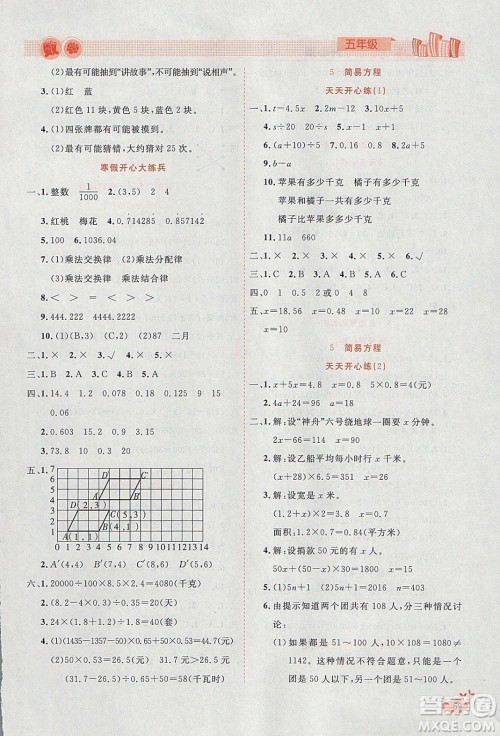 数学
五年级
(2)最有可能抽到“讲故事”,最不可能抽到“说相声”
3.(1)红 蓝
(2)红色 21 块,黄色 5 块,蓝色 4 块
4.(1)四张牌都有可能被摸到。
(2)最有可能猜错,大约猜对 25 次。
寒假开心大练兵
一、1.整数 1/1000 2.(3,5) 2 4
3.红桃 梅花 4.0.714285
5.100 6.1036.04
7.(1)乘法交换律 (2)乘法分配律
(3)乘法交换律 乘法结合律
8.< > = > >
9.4444.222 44444.2222
10.(1)(B) (A) (2)87 二月
二、1.× 2.× 3.× 4.√
三、1.C 2.B 3.A 4.B
四、1.14.4 1.2 0.078 0.125 18.18
2.0.603 0.15
3.73.8 10 9.2 0.29
五、1.
D′ C′
A′ B′
D(2,3) C(5,3)
A(1,1) B(4,1)
7
6
5
4
3
2
1
0 1 2 3 4 5 6 7 8 9 10 11 12 13 14
2.A′(4,4) B′(7,4) C′(8,6) D′(5,6)
六、1.20000÷100×8.5×2.4=4080(千克)
2.(8.2-0.2)×30÷(8.2+3.8)=20(天)
3.24×(1-0.2)÷1.2=16(天)
4.(1)(1435-1357)×0.50=39(元)
(2)50×0.5=25(元) 31.7元>25元
(31.7-50×0.5)÷0.67+50=60(千瓦时)
5 简易方程
天天开心练(1)
一、1.t-4.5x 2.2m-12 3.10x+5
4.s÷20 s÷t 5.0.52x 6.x+2
7.4x 8.(1)6a (2)2.5b
9.b-a
10.苹果有多少千克 橘子有多少千克
苹果和橘子一共有多少千克
橘子比苹果多多少千克
11.11a 660
二、1.× 2.× 3.× 4.× 5.× 6.√
三、1.A 2.B 3.A 4.D 5.C
四、0 1 0.5 2或0 4 8
五、x=18 x=1 x=16 x=7.5 x=5.2
x=1.9
5 简易方程
天天开心练(2)
一、1.x+5x=4.8 5x-x=3.2 0.8
2.4a+24=98
二、1.解:设“神舟”六号绕地球一圈要 x 分钟。
2x-64=116 x=90
2.解:设乙船平均每小时行 x 千米。
(x+32)×6.5=448.5 x=37
3.解:设宽是 x 米。
(1.2+x)×2=4.2 x=0.9
面积:1.2×0.9=1.08(平方米)
4.解:设捐款 50 元的有 x 人。
50x+(x+10)×100=5500 x=30
5.(1)5n+1 (2)5n+1=2016 n=403
6.由提示知道两个团共有 108 人,分三种情况讨论:
(1)如果甲团是 51~100 人,乙团也是 51~100 人,则门票为 108×10=1080≠1142。这种情况不成立,所以甲团是 50 人以下,乙团是 51~100 人。